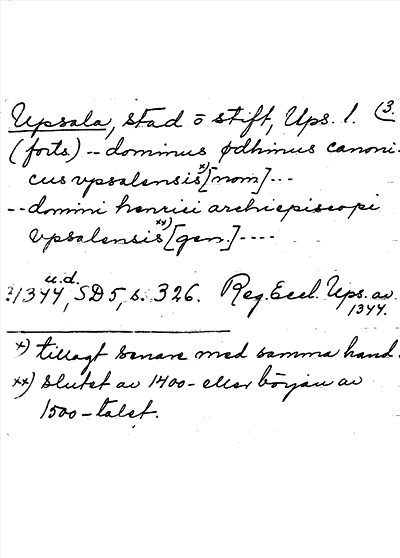 Upsala, stad o stift, Ups. l. (3.
(forts.) -- dominus ødhinus canoni-
cus vpsalensis x) [nom] ---
-- domini henrici archiepiscopi
vpsalensis xx) [gen.] ----
u.d.
1344, SD 5, s. 326. Reg. Eccl. Ups. av
1344.
x) tillagt senare med samma hand.
xx) slutet av 1400- eller början av
1500-talet.